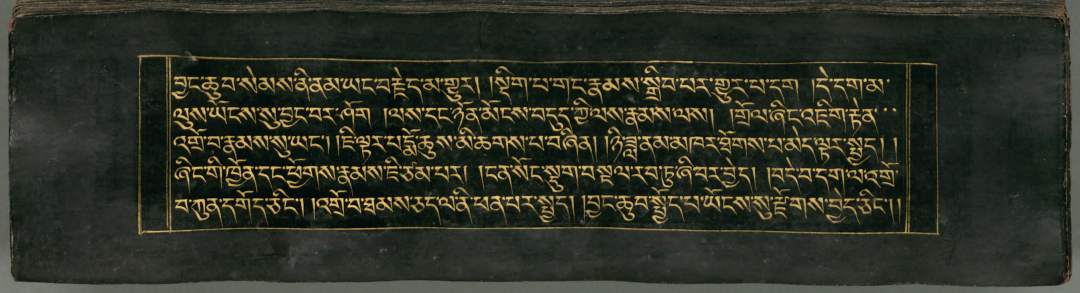 བྱང་ཆུབ་སེམས་ནི་ནམ་ཡང་བརྗེད་མ་གྱུར། །སྡིག་པ་གང་རྣམས་སྒྲིབ་པར་གྱུར་པ་དག །དེ་དག་མ་
ལུས་ཡོངས་སུ་བྱང་བར་ཤོག །ལས་དང་ཉོན་མོངས་བདུད་ཀྱི་ལས་རྣམས་ལས། །གྲོལ་ཞིང་འཇིག་རྟེན་
འགྲོ་བ་རྣམས་སུ་ཡང་། །ཇི་ལྟར་པདྨོ་ཆུས་མི་ཆགས་པ་བཞིན། །ཉི་ཟླ་ནམ་མཁར་ཐོགས་པ་མེད་ལྟར་སྤྱད། །
ཞིང་གི་ཁྱོན་དང་ཕྱོགས་རྣམས་ཇི་ཙམ་པར། །ངན་སོང་སྡུག་བསྔལ་རབ་ཏུ་ཞི་བར་བྱེད། །བདེ་བ་དག་ལ་འགྲོ་
བ་ཀུན་དགོད་ཅིང་། །འགྲོ་བ་ཐམས་ཅད་ལ་ནི་ཕན་པར་སྤྱད། །བྱང་ཆུབ་སྤྱོད་པ་ཡོངས་སུ་རྫོགས་བྱེད་ཅིང་། །